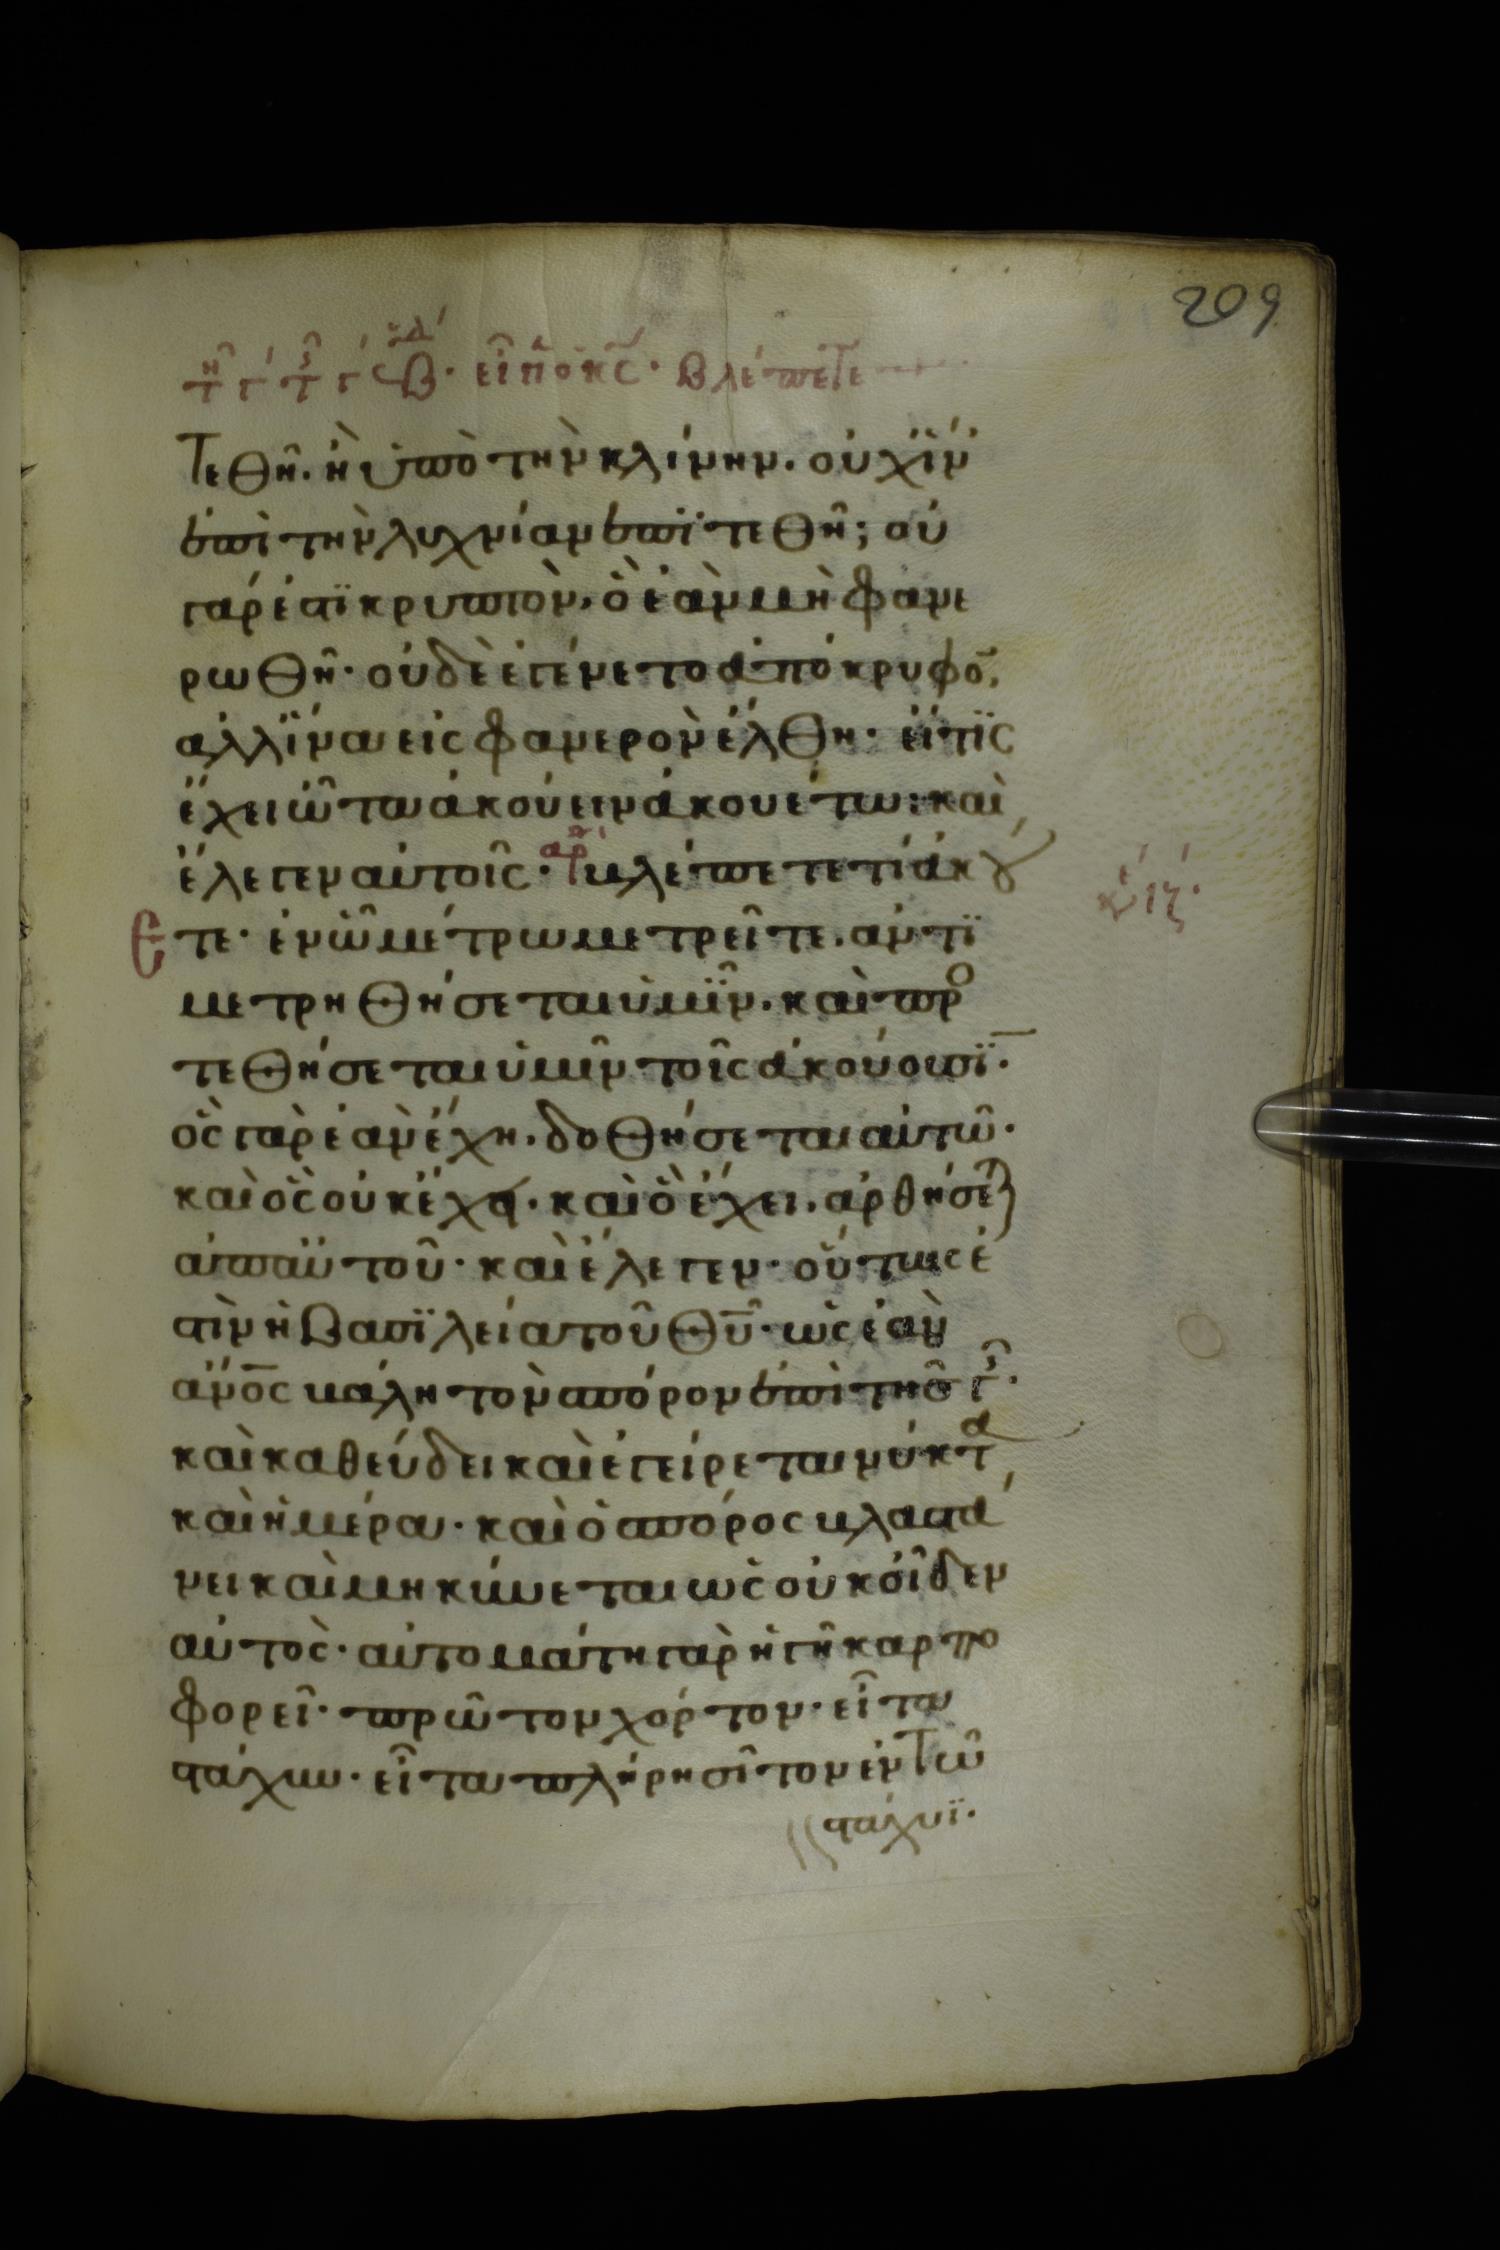 209
εἶπ ὁ κς· βλέπετε
τεθῆ· ἢ ὑπὸ τὴν κλίνην· οὐχ ἵν
ἐπὶ τὴν λυχνίαν ἐπιτεθῆ; οὐ
γάρ ἐστϊ κρυπτὸν, ὃ ἐὰν μὴ φανε
ρωθῆ· οὐδὲ ἐγένετο ἀπόκρυφο̄,
ἀλλ ἵνα εἰς φανερὸν ἔλθη· εἴ τϊς
ἔχει ὦτα ἀκούειν ἀκουέτω: καὶ
ἔλεγεν αὐτοῖς· βλέπετε τί ἀκού
ετε· ἐν ὧ μέτρω μετρεῖτε, ἀντϊ
μετρηθήσεται ὑμῖν, καὶ προ
τεθήσεται ὑμῖν τοῖς ἀκούουσϊ̄·
ὃς γὰρ ἐὰν ἔχη, δοθήσεται αὐτῶ·
καὶ ὃς οὐκ ἔχει· καὶ ὃ ἔχει, ἀρθήσετ
ἀπ αὐτοῦ· καὶ ἔλεγεν· οὕτως ἐ
στὶν ἡ βασϊλεία τοῦ θῦ· ὡς ἐὰν
ἄνο̄ς βάλη τὸν σπόρον ἐπὶ τῆς γῆς·
καὶ καθεύδει καὶ ἐγείρεται νύκτα
καὶ ἡμέραν· καὶ ὁ σπόρος βλαστά
νει καὶ μηκύνεται ὡς οὐκ οἶδεν
αὐτὸς· αὐτομάτη γὰρ ἡ γῆ καρπο
φορεῖ· πρῶτον χόρτον· εἶτα
στάχυν· εἶτα πλήρη σῖτον ἐν τῶ
στάχυϊ·